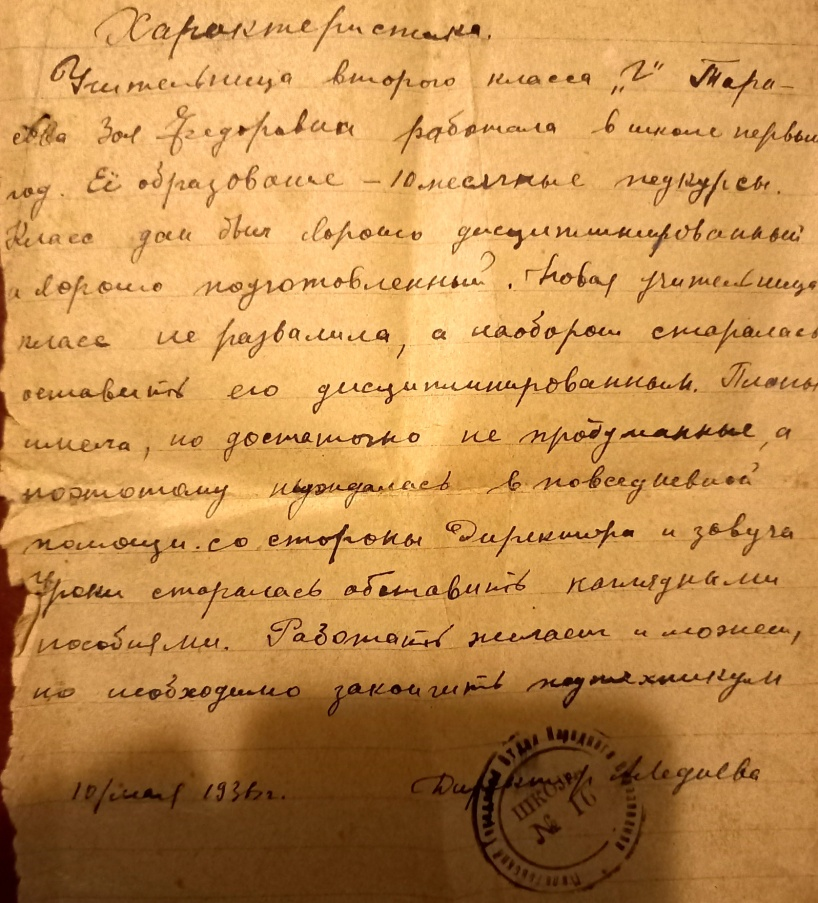 Характеристика.
Учительница второго класса „Г" Тара-
сова Зоя Федоровна работала в школе первый
год. Её образование – 10 месячные педкурсы.
Класс дан был хорошо дисциплинированный
и хорошо подготовленный. Новая учительница
класс не развалила, а наоборот старалась
оставить его дисциплинированным. Планы
имела, но достаточно не продуманные, а
поэтому нуждалась в повседневной
помощи со стороны Директора и завуча
Уроки старалась обставить наглядными
пособиями. Работать желает и может,
но необходимо закончить педтехникум
10/мая 1936г. Директор
Городской Отдел Народного Образования
ШКОЛА
№ 16